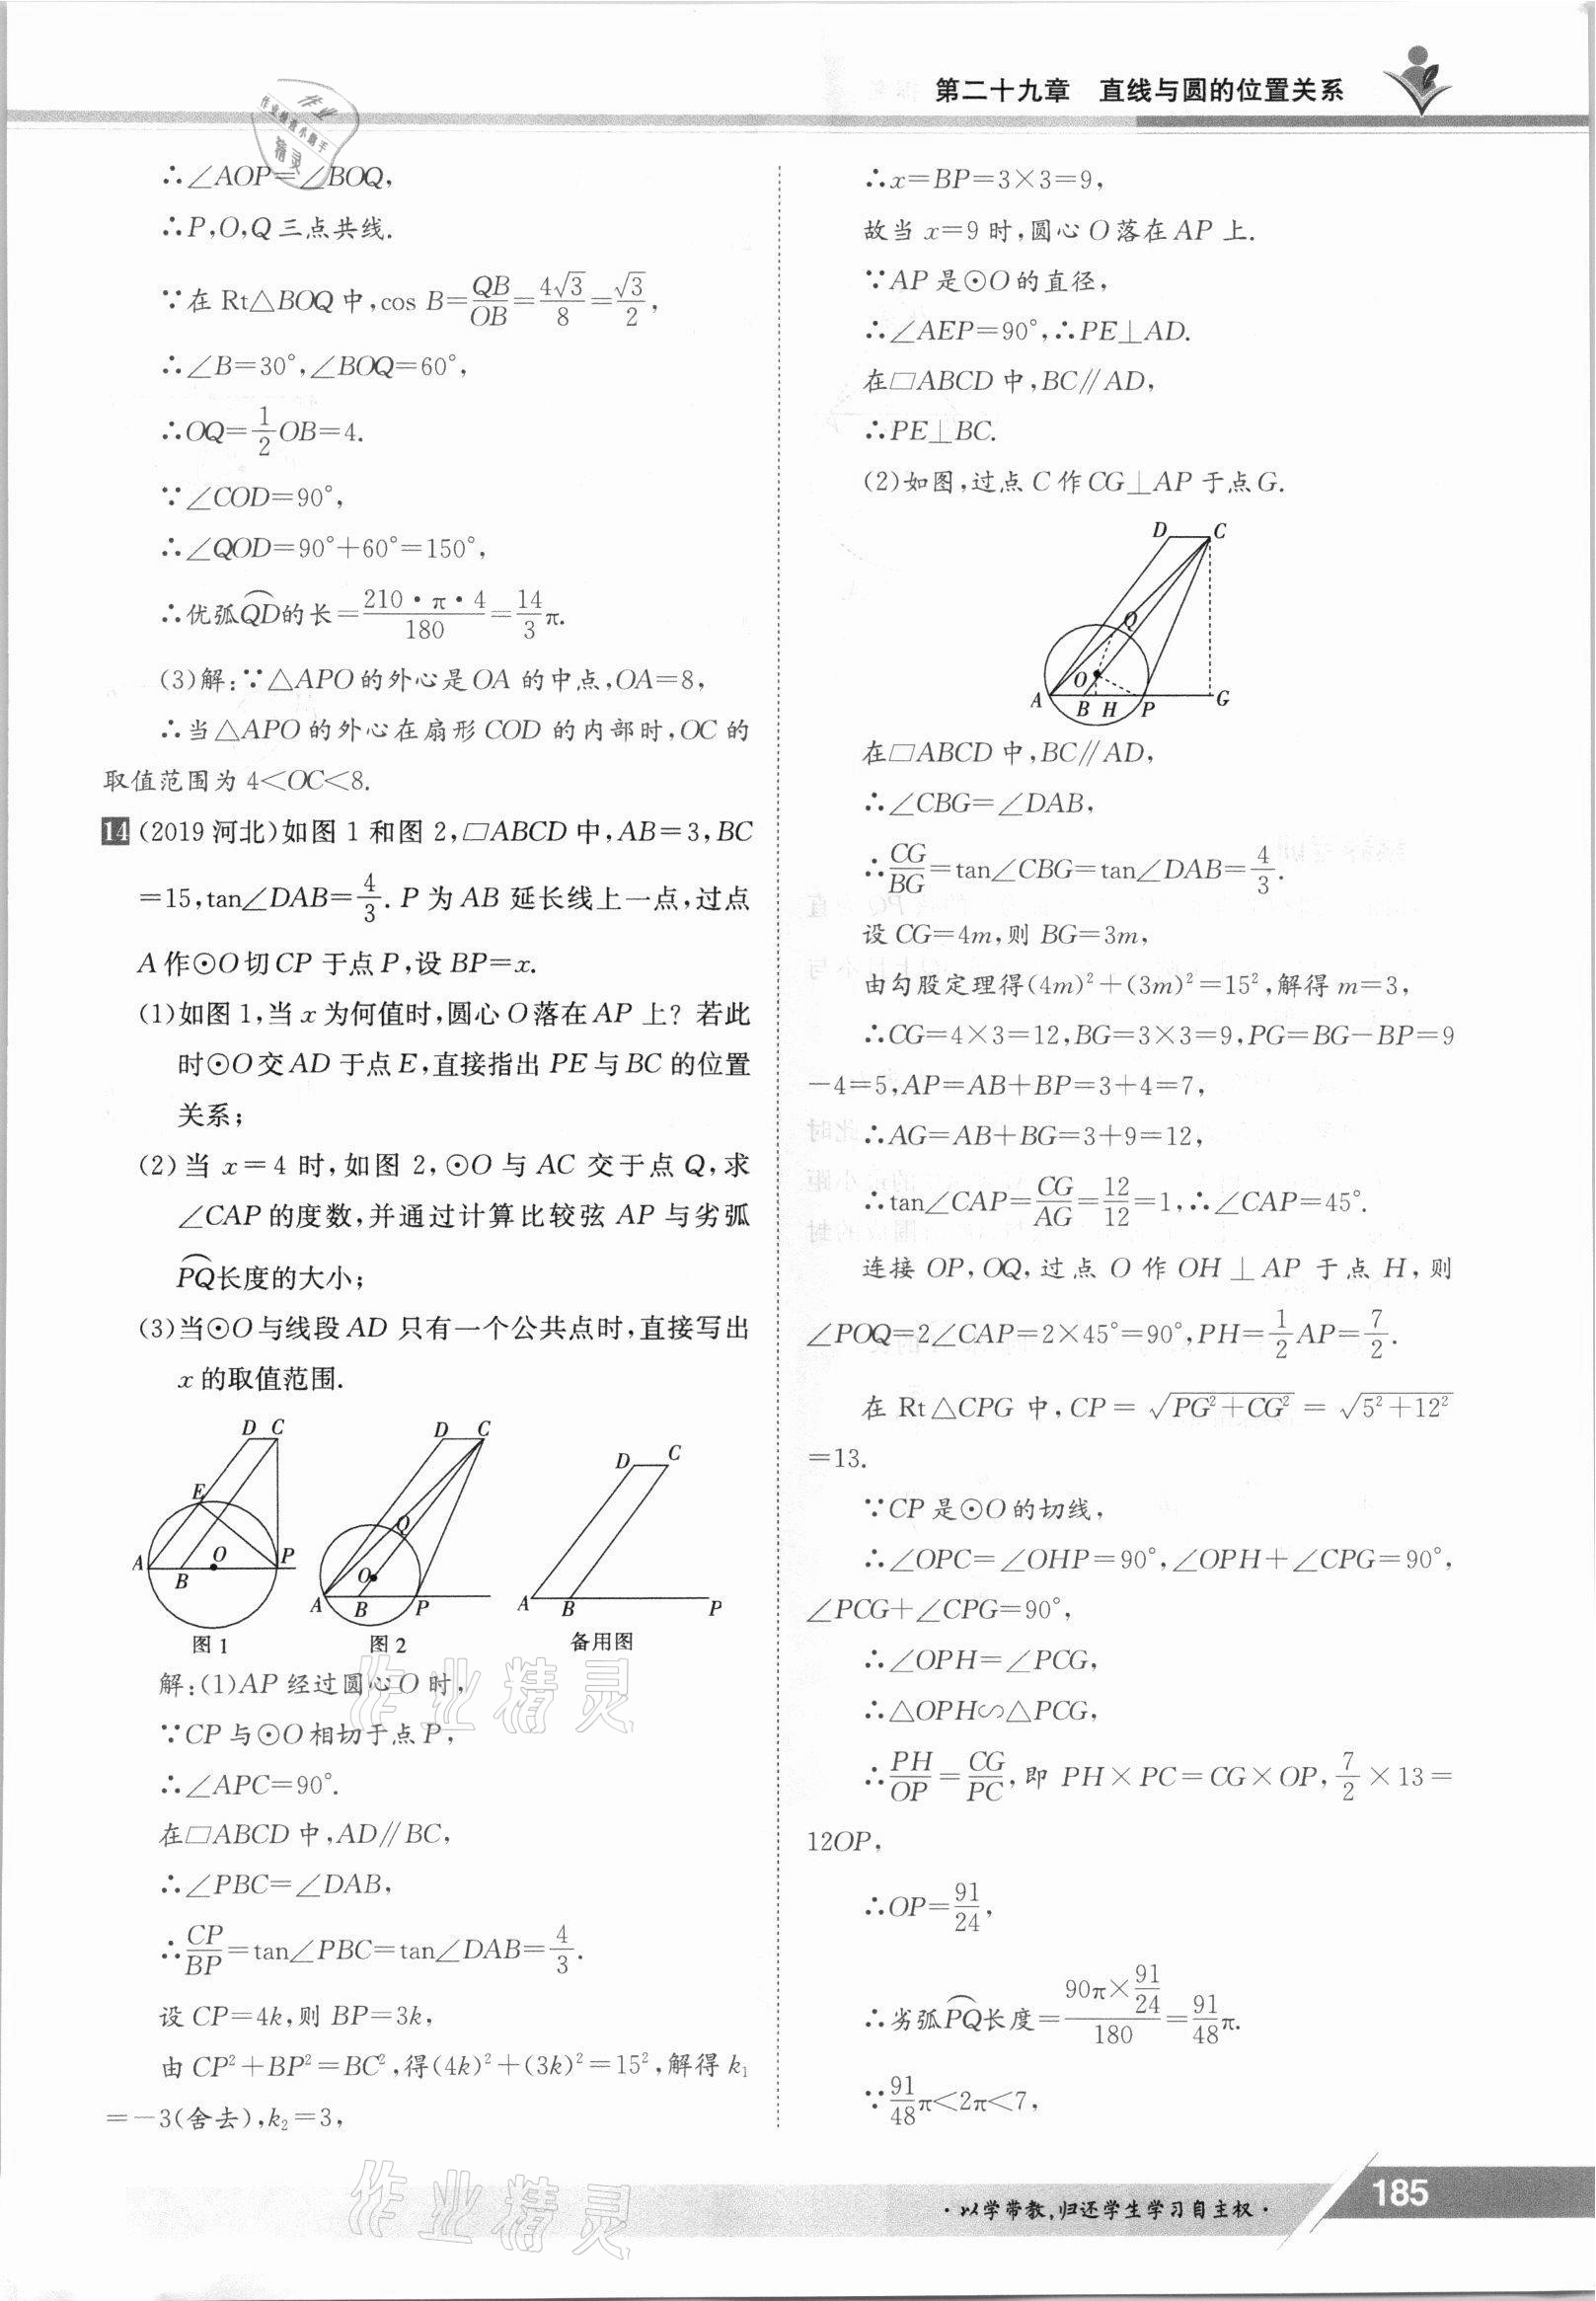 第二十九章 直线与圆的位置关系
∴∠AOP=∠BOQ,
∴P,O,Q三点共线.
∵在 Rt△BOQ中,cos B=QB/OB=4√3/8=√3/2,
∴∠B=30°,∠BOQ=60°,
∴OQ=1/2OB=4.
∵∠COD=90°,
∴∠QOD=90°+60°=150°,
∴优弧QD的长=210·π·4/180=14/3π.
(3)解:∵△APO的外心是OA的中点,OA=8,
∴当△APO的外心在扇形COD的内部时,OC的
取值范围为 4<OC<8.
14 (2019河北)如图1和图2,▱ABCD中,AB=3,BC
=15,tan∠DAB=4/3.P为AB延长线上一点,过点
A作⊙O切CP于点P,设BP=x.
(1)如图1,当x为何值时,圆心O落在AP上?若此
时⊙O交AD于点E,直接指出PE与BC的位置
关系;
(2)当x=4时,如图2,⊙O与AC交于点Q,求
∠CAP的度数,并通过计算比较弦AP与劣弧
PQ长度的大小;
(3)当⊙O与线段AD只有一个公共点时,直接写出
x的取值范围.
D C
E
A B O P
图1
D C
Q
O
A B P
图2
D C
A B P
备用图
解:(1)AP经过圆心O时,
∵CP与⊙O相切于点P,
∴∠APC=90°.
在▱ABCD中,AD∥BC,
∴∠PBC=∠DAB,
∴CP/BP=tan∠PBC=tan∠DAB=4/3.
设CP=4k,则BP=3k,
由CP²+BP²=BC²,得(4k)²+(3k)²=15²,解得k₁
=-3(舍去),k₂=3,
∴x=BP=3×3=9,
故当x=9时,圆心O落在AP上.
∵AP是⊙O的直径,
∴∠AEP=90°,∴PE⊥AD.
在▱ABCD中,BC∥AD,
∴PE⊥BC.
(2)如图,过点C作CG⊥AP于点G.
D C
Q
O
A B H P G
在▱ABCD中,BC∥AD,
∴∠CBG=∠DAB,
∴CG/BG=tan∠CBG=tan∠DAB=4/3.
设CG=4m,则BG=3m,
由勾股定理得(4m)²+(3m)²=15²,解得m=3,
∴CG=4×3=12,BG=3×3=9,PG=BG-BP=9
-4=5,AP=AB+BP=3+4=7,
∴AG=AB+BG=3+9=12,
∴tan∠CAP=CG/AG=12/12=1,∴∠CAP=45°.
连接OP,OQ,过点O作OH⊥AP于点H,则
∠POQ=2∠CAP=2×45°=90°,PH=1/2AP=7/2.
在Rt△CPG中,CP=√(PG²+CG²)=√(5²+12²)
=13.
∵CP是⊙O的切线,
∴∠OPC=∠OHP=90°,∠OPH+∠CPG=90°,
∠PCG+∠CPG=90°,
∴∠OPH=∠PCG,
∴△OPH∽△PCG,
∴PH/OP=CG/PC,即PH×PC=CG×OP,7/2×13=
12OP,
∴OP=91/24,
∴劣弧PQ长度=90π×91/24/180=91/48π.
∵91/48π<2π<7,
·以学带教,归还学生学习自主权·
185
作业精灵
作业精灵